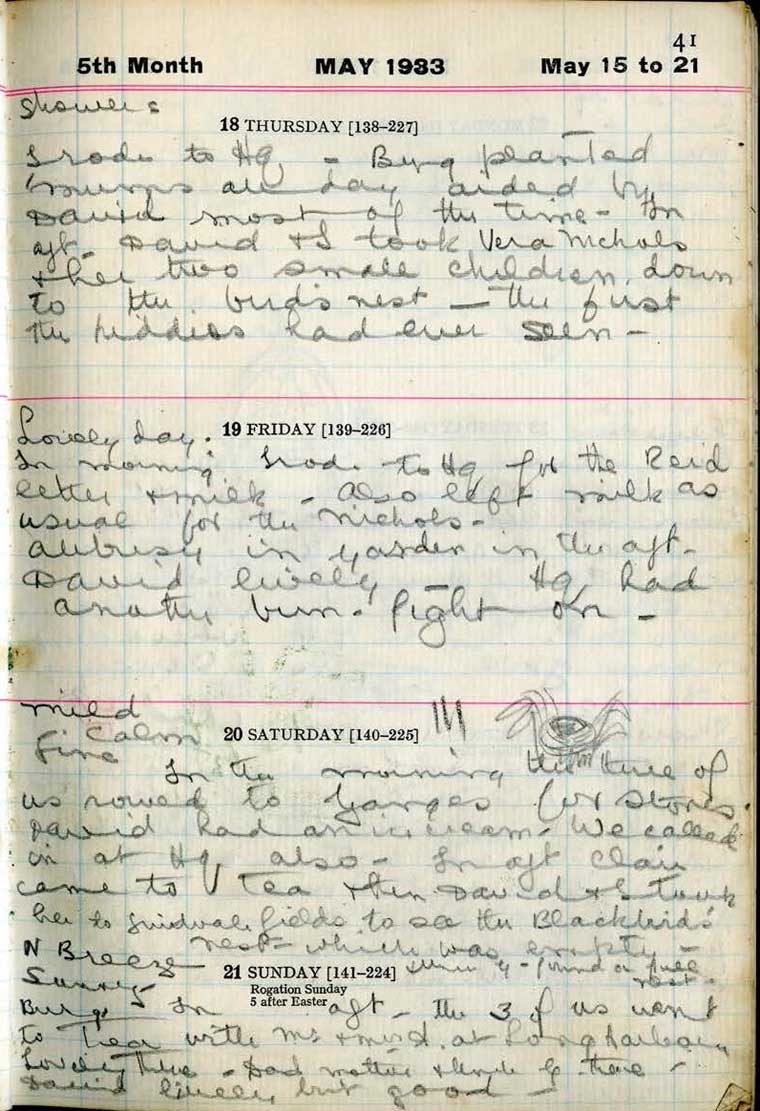 41
5th Month MAY 1933 May 15 to 21
Showers
18 THURSDAY [138–227]
I rode to Hq - Burg planted
all day aided by
David most of the time - In
aft - David & I took Vera Nichols
& her two small children down
to the birds nest — the first
the kiddies had ever seen -
Lovely day.
19 FRIDAY [139–226]
In morning I rode to Hq for the Reid
letter & milk - also left milk as
usual for the Nichols -
All busy in garden in the aft -
David lively — Hq had
another bun-fight on -
Mild
Calm
Fine
20 SATURDAY [140–225]
In the morning the three of
us rowed to Ganges for Stores.
David had an ice cream - We called
in at Hq also - In aft Clair
came to Tea & then David & I took
her to fields to see the Blackbirds'
nest which was empty -
N Breeze
Sunny
21 SUNDAY [141–224]
found a full
nest -
Rogation Sunday
5 after Easter
Burg In aft - the 3 of us went
to Tea with Mr & Mrs at Long Harbour
Lovely time - Dad mother & there -
David lively but good -